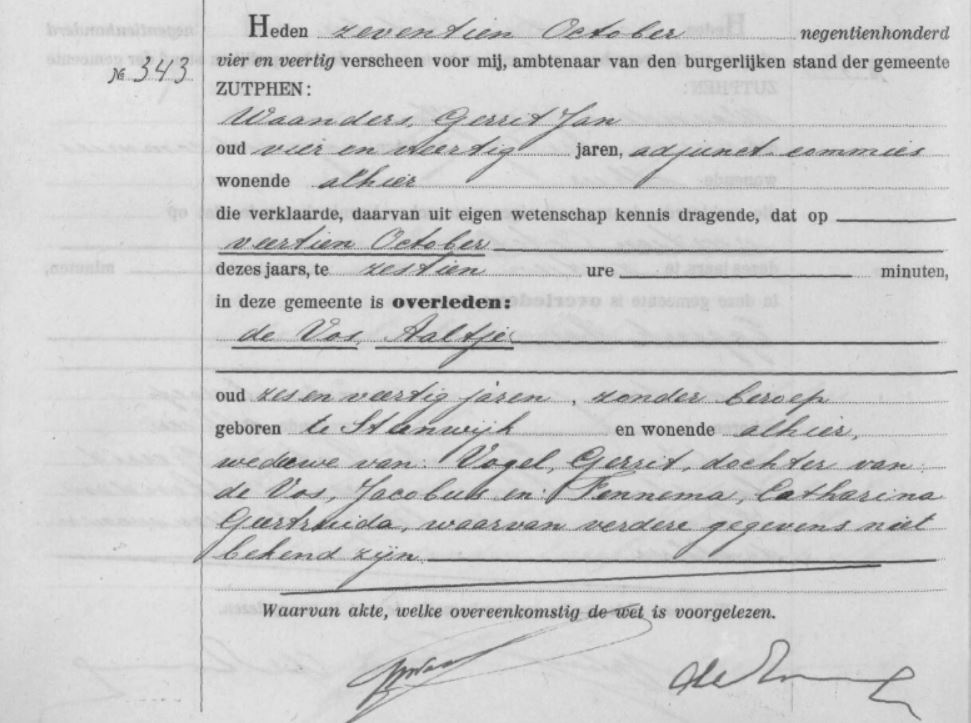 Heden zeventien October negentienhonderd
№ 343 vier en veertig verscheen voor mij, ambtenaar van den burgerlijken stand der gemeente
ZUTPHEN:
Waanders, Gerrit Jan
oud vier en veertig jaren, adjunct commies
wonende alhier
die verklaarde, daarvan uit eigen wetenschap kennis dragende, dat op
veertien October
dezes jaars, te zestien ure minuten,
in deze gemeente is overleden:
de Vos, Aaltje
oud zes en veertig jaren, zonder beroep
geboren te Steenwijk en wonende alhier,
weduwe van: Vogel, Gerrit, dochter van
de Vos, Jacobus en: Pennema, Catharina
Geertruida, waarvan verdere gegevens niet
bekend zijn
Waarvan akte, welke overeenkomstig de wet is voorgelezen.